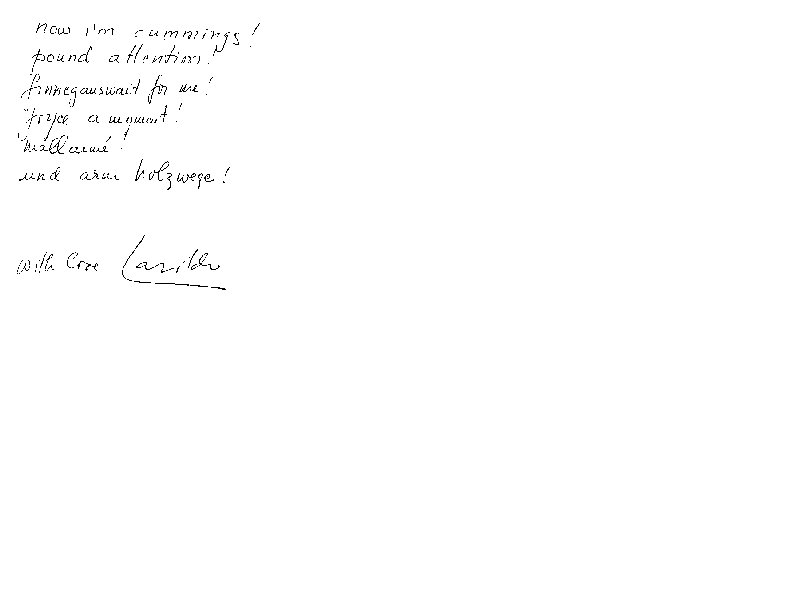 now i'm cummings!
pound attention!
finneganswait for me!
a moment!
mallarmé!
und arno holzwege!
with love